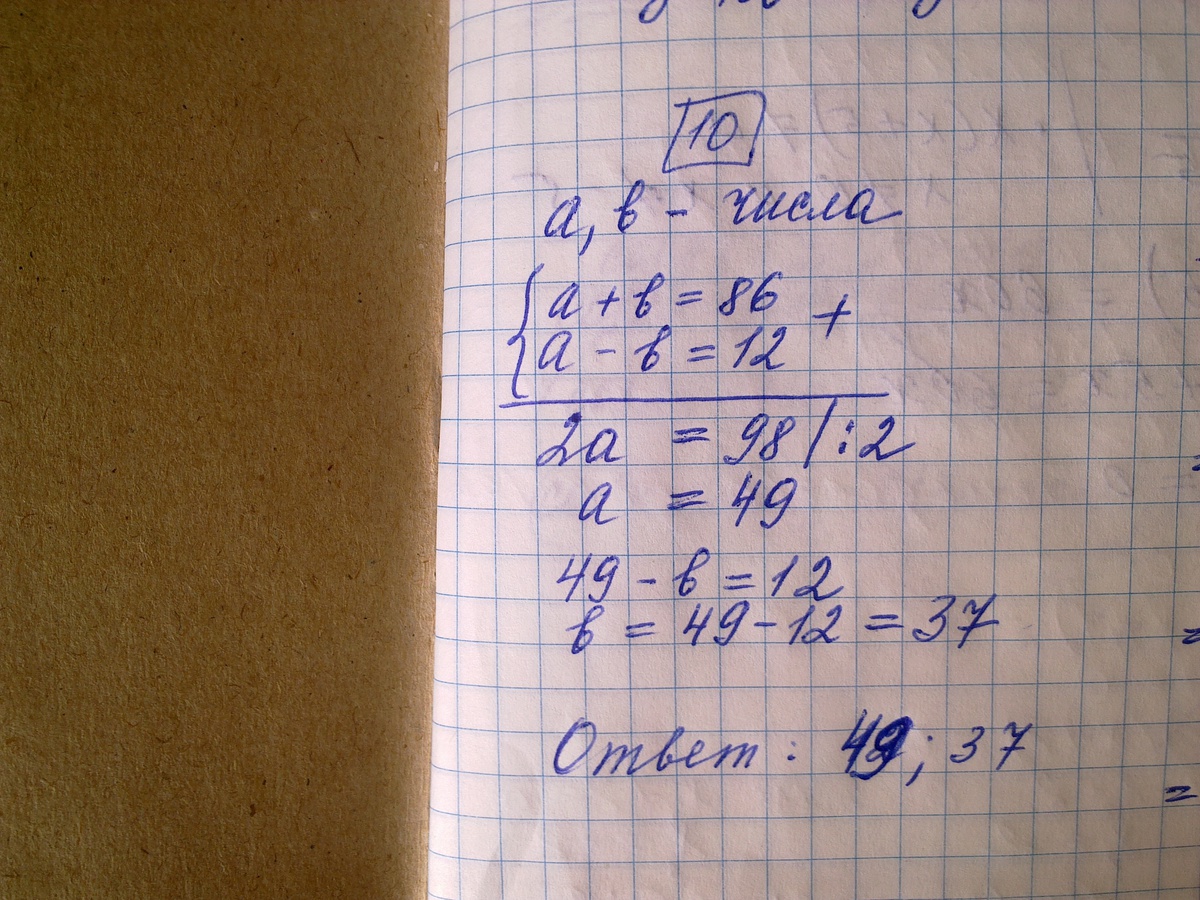 10
а, в - числа
а + в = 86 +
а - в = 12
2а = 98 / : 2
а = 49
49 - в = 12
в = 49 - 12 = 37
Ответ: 49; 37